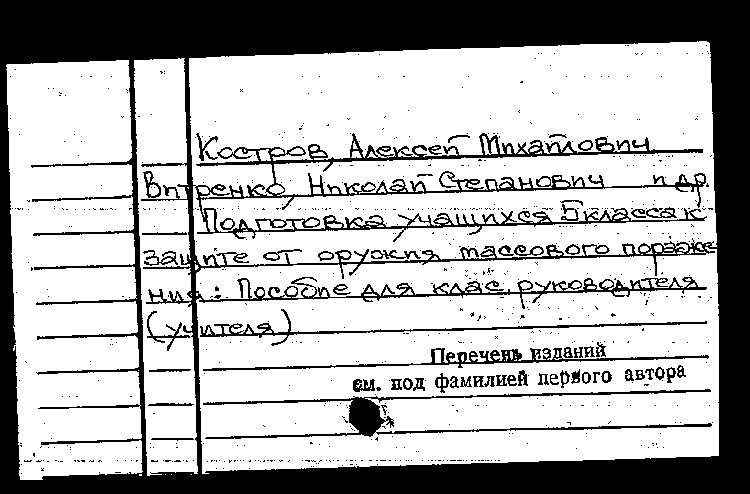 Костров, Алексей Михайлович
Витренко, Николай Степанович и др.
Подготовка учащихся 5 класса к
защите от оружия массового пораже-
ния: Пособие для клас. руководителя
(учителя)
Перечень изданий
см. под фамилией первого автора